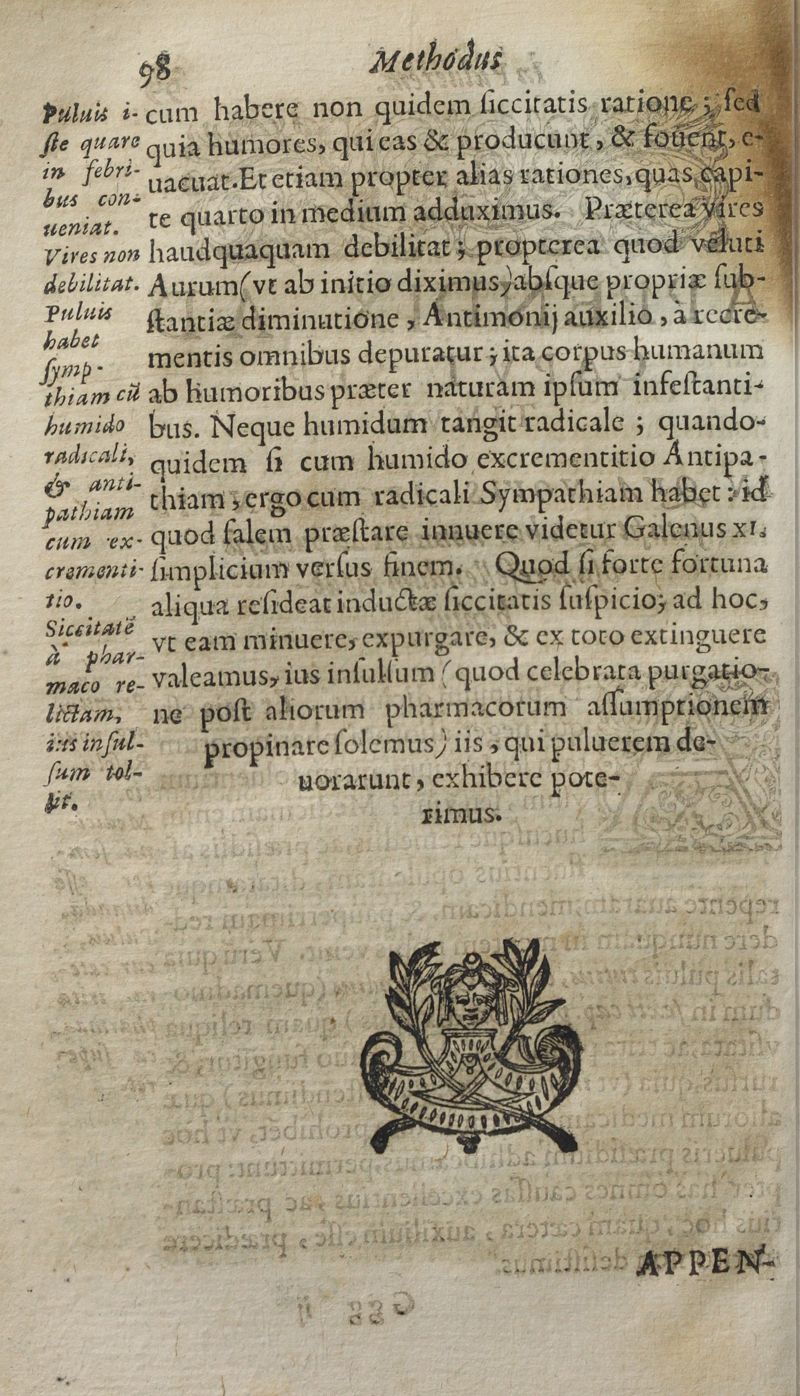 98 Methodus
cum habere non quidem ſiccitatis ratione; ſed
quia humores, qui eas & producunt, & fouent, e-
uacuat. Et etiam propter alias rationes, quas capi-
te quarto in medium adduximus. Præterea vires
haudquaquam debilitat; propterea quod veluti
Aurum (vt ab initio diximus) abſque propriæ ſub-
ſtantiæ diminutione, Antimonij auxilio, à recre-
mentis omnibus depuratur; ita corpus humanum
ab humoribus præter naturam ipſum infeſtanti-
bus. Neque humidum tangit radicale; quando-
quidem ſi cum humido excrementitio Antipa-
thiam, ergo cum radicali Sympathiam habet: id
quod ſalem præſtare innuere videtur Galenus XI.
ſimplicium verſus finem. Quod ſi forte fortuna
aliqua reſideat inductæ ſiccitatis ſuſpicio; ad hoc,
vt eam minuere, expurgare, & ex toto extinguere
valeamus, ius inſulſum (quod celebrata purgatio-
ne poſt aliorum pharmacorum aſſumptionem
propinare ſolemus) iis, qui puluerem de-
uorarunt, exhibere pote-
rimus.
Puluis i-
ſte quare
in febri-
bus con-
ueniat.
Vires non
debilitat.
Puluis
habet
ſymp-
thiam cũ
humido
radicali,
& anti-
pathiam
cum ex-
crementi-
tio.
Siccitatē
à phar-
maco re-
lictam,
ius inſul-
ſum tol-
lit.
APPEN-